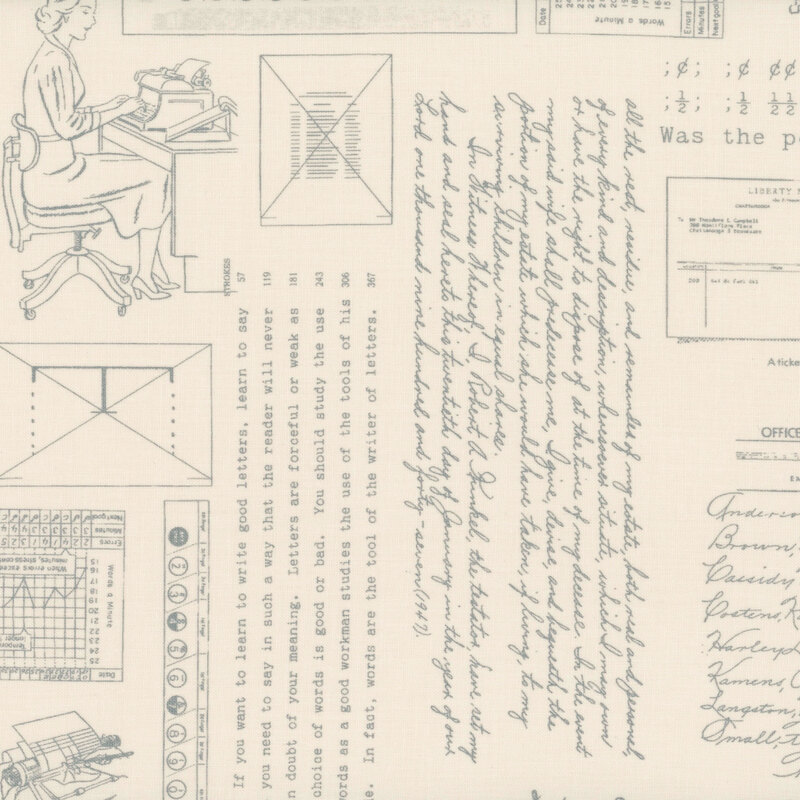 Date
Words a Minute
Errors
Minutes
Next goal
; ¢ ; ; ¢ ¢¢
; ½ ; ; ½ ½½
Was the p
LIBERTY
To Mr Theodore L Campbell
A ticke
OFFICE
Anderso
Brown,
Cassidy
Costens, K
Harleyd
Kamens, C
Langston,
Small, t
all the rest, residue, and remainder of my estate, both real and personal,
of every kind and description, wheresoever situate, which I may own
or have the right to dispose of at the time of my decease. In the event
my said wife shall predecease me, I give, devise, and bequeath the
portion of my estate which she would have taken, if living, to my
surviving children in equal shares.
In Witness Whereof, I Robert A. Dunkel, the testator, have set my
hand and seal hereto this twentieth day of January in the year of our
Lord one thousand nine hundred and forty-seven (1947).
STROKES
If you want to learn to write good letters, learn to say 57
you need to say in such a way that the reader will never 119
n doubt of your meaning. Letters are forceful or weak as 181
choice of words is good or bad. You should study the use 243
words as a good workman studies the use of the tools of his 306
e. In fact, words are the tool of the writer of letters. 367
Next goal
Minutes
Errors
When errors exceed
minutes, stress cont
Words a Minute
15
16
17
18
19
20
21
22
23
24
25
Date